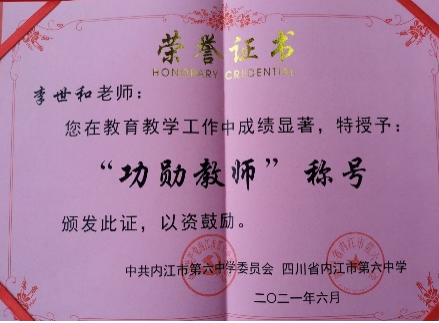 荣誉证书
HONORARY CREDENTIAL
李世和老师：
您在教育教学工作中成绩显著，特授予：
“功勋教师”称号
颁发此证，以资鼓励。
中共内江市第六中学委员会 四川省内江市第六中学
二〇二一年六月